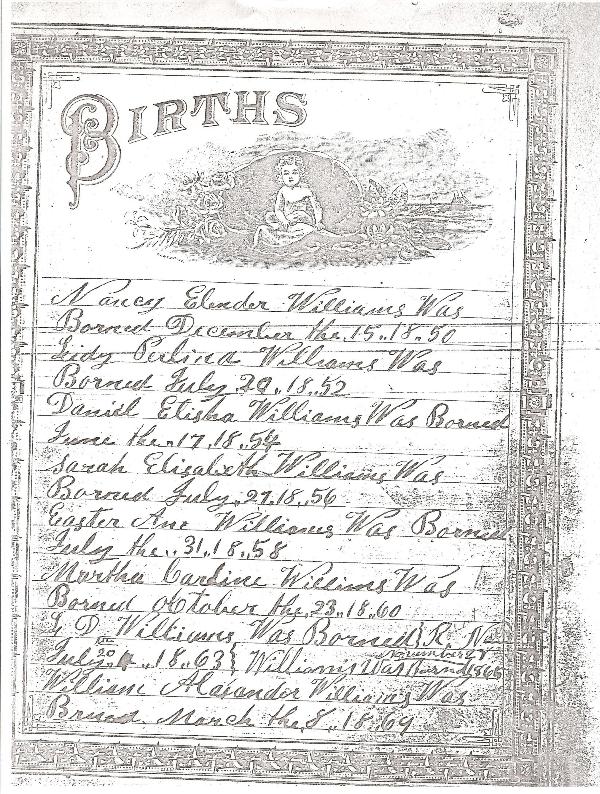 BIRTHS
Nancy Elender Williams Was
Borned December the 15.. 18..50
Lidy Perlina Williams Was
Borned July 29.. 18..52
Daniel Elisha Williams Was Borned
June the.. 17.. 18..54
Sarah Elisabeth Williams Was
Borned July.. 27.. 18..56
Easter Ann Williams Was Borned
July the.. 31.. 18..58
Martha Cardine Willims Was
Borned October the 23.. 18..60
D Williams Was Borned { R. N
July 20 18..63 { Williams Was Borned November 1866
William Alexandor Williams Was
Bruned March the 8.. 18..69